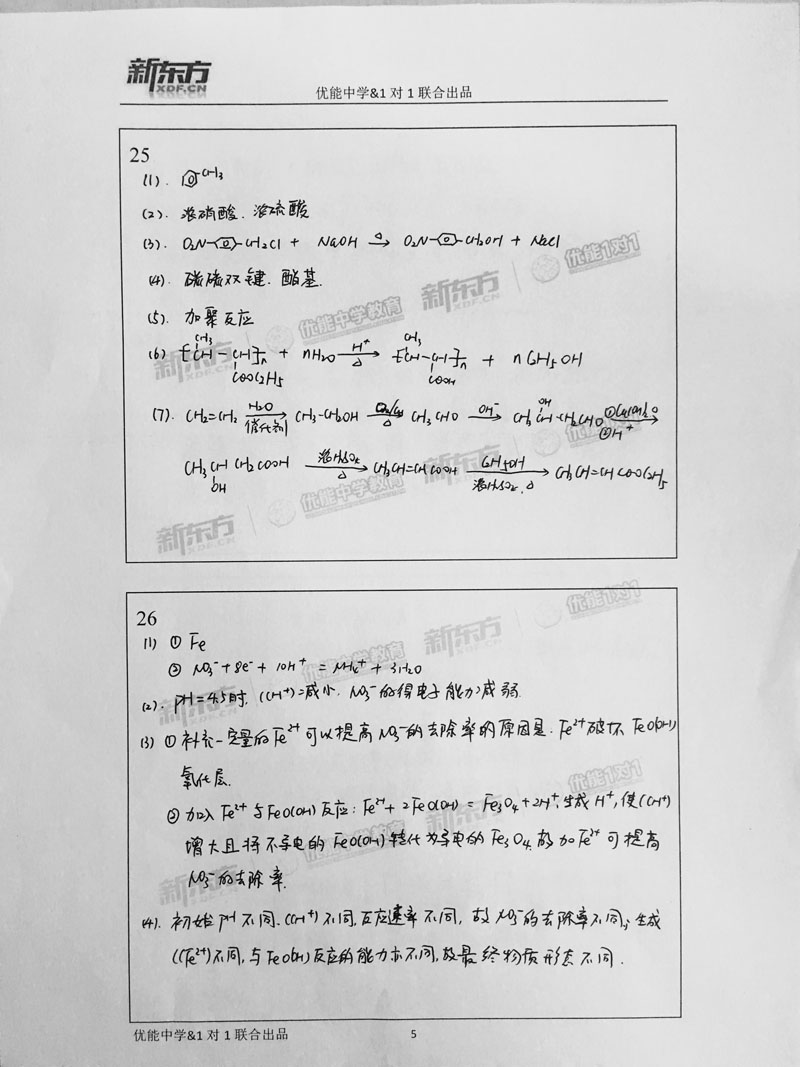 新东方
XDF.CN
优能中学&1 对 1 联合出品
25
(1). CH3
(2). 浓硝酸、浓硫酸
(3). O2N- -CH2Cl + NaOH △→ O2N- -CH2OH + NaCl
(4). 碳碳双键、酯基.
(5). 加聚反应
(6) [CH(CH3)-CH(COOC2H5)]n + nH2O H+ △→ [CH(CH3)-CH(COOH)]n + nC2H5OH
(7). CH2=CH2 H2O 催化剂→ CH3-CH2OH O2/Cu △→ CH3CHO OH-→ CH3CH(OH)-CH2CHO ①Cu(OH)2,△ ②H+→
CH3CH(OH)CH2COOH 浓H2SO4 △→ CH3CH=CHCOOH C2H5OH 浓H2SO4,△→ CH3CH=CHCOOC2H5
26
(1) ① Fe
② NO3- + 8e- + 10H+ = NH4+ + 3H2O
(2). pH=4.5时, C(H+)减小, NO3-的得电子能力减弱.
(3) ① 补充一定量的Fe2+可以提高NO3-的去除率的原因是: Fe2+破坏FeO(OH)
氧化层.
② 加入Fe2+与FeO(OH)反应: Fe2+ + 2FeO(OH) = Fe3O4+2H+, 生成H+, 使C(H+)
增大且将不导电的FeO(OH)转化为导电的Fe3O4. 故加Fe2+可提高
NO3-的去除率.
(4). 初始pH不同, C(H+)不同, 反应速率不同, 故NO3-的去除率不同; 生成
C(Fe2+)不同, 与FeO(OH)反应的能力亦不同, 故最终物质形态不同.
优能中学&1 对 1 联合出品
5
新东方 XDF.CN 优能中学教育 新东方 XDF.CN 优能1对1